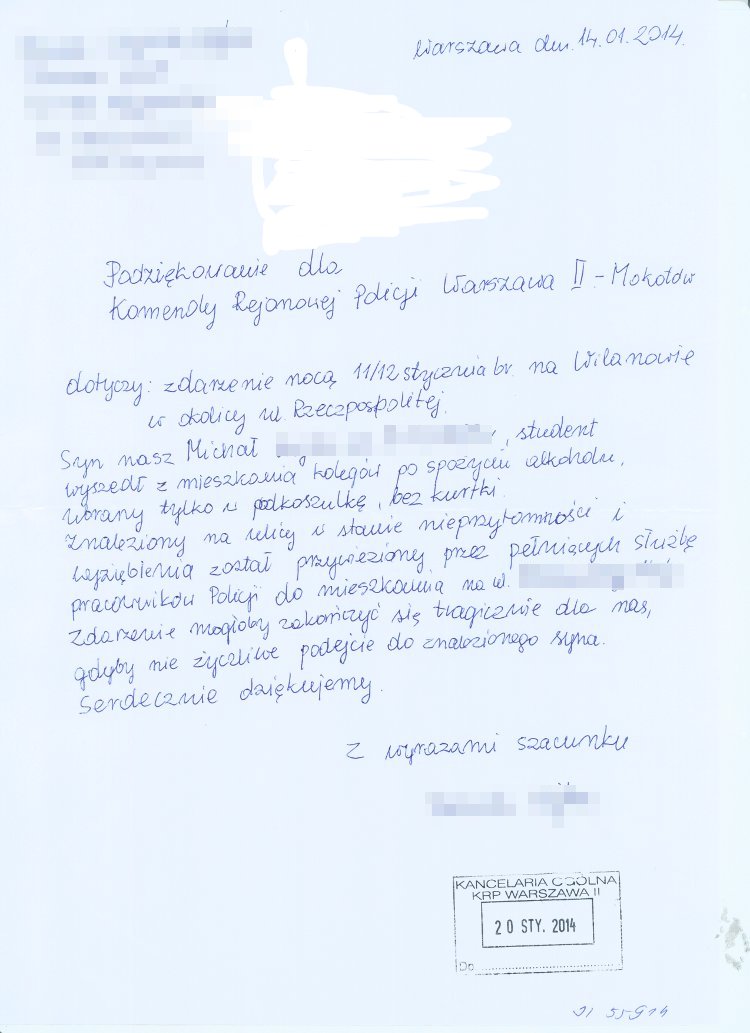 Warszawa dn. 14.01.2014.
Podziękowanie dla
Komendy Rejonowej Policji Warszawa II - Mokotów
dotyczy: zdarzenie nocą 11/12 stycznia br. na Wilanowie
w okolicy ul. Rzeczpospolitej.
Syn nasz Michał , student
wyszedł z mieszkania kolegów po spożyciu alkoholu,
ubrany tylko w podkoszulkę, bez kurtki.
Znaleziony na ulicy w stanie nieprzytomności i
wyziębienia został przywieziony przez pełniących służbę
pracowników Policji do mieszkania na ul.
Zdarzenie mogłoby zakończyć się tragicznie dla nas,
gdyby nie życzliwe podejście do znalezionego syna.
Serdecznie dziękujemy.
Z wyrazami szacunku
KANCELARIA OGÓLNA
KRP WARSZAWA II
20 STY. 2014
Do